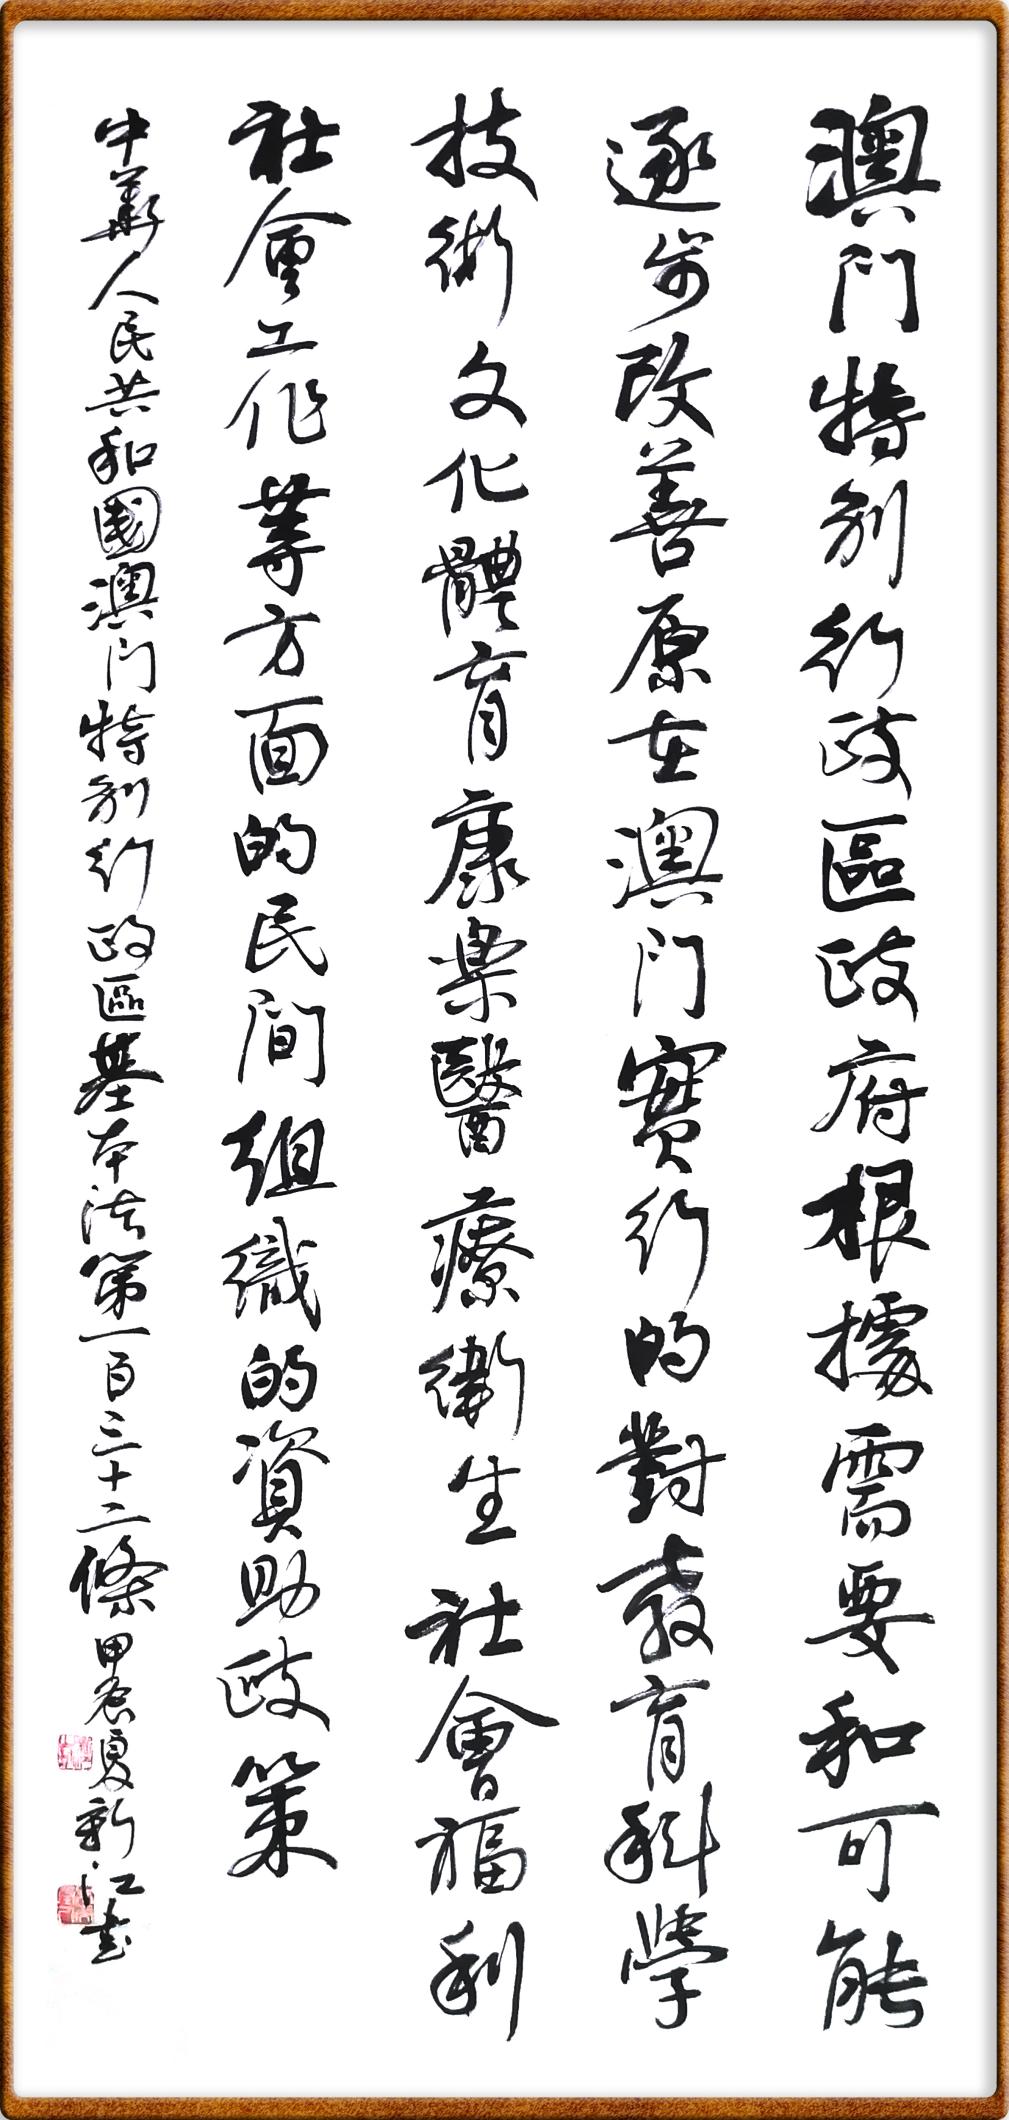 澳門特別行政區政府根據需要和可能
逐步改善原在澳門實行的對教育科學
技術文化體育康樂醫療衛生社會福利
社會工作等方面的民間組織的資助政策
中華人民共和國澳門特別行政區基本法第一百三十二條甲辰夏新江書